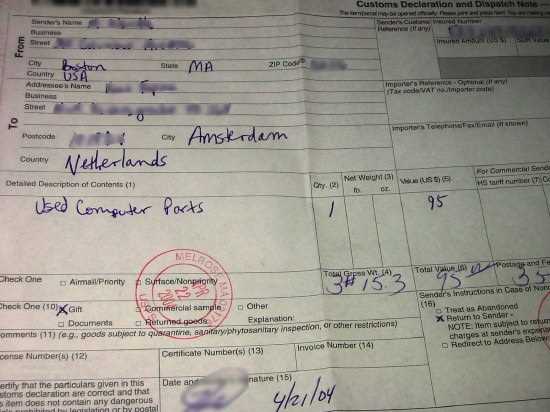 Customs Declaration and Dispatch Note
Sender's Name
Sender's Customs
Reference (If any)
Insured Number
Business
Insured Amount (US $)
Street
From
City Boston State MA ZIP Code
Country USA
Addressee's Name
Importer's Reference - Optional (If any)
(Tax code/VAT no./importer code)
Business
Street
To
Importer's Telephone/Fax/Email (If known)
Postcode City Amsterdam
Country Netherlands
Detailed Description of Contents (1) Qty. (2) Net Weight (3) lb. oz. Value (US $) (5)
For Commercial
HS tariff number (7)
Used Computer Parts 1 95
Total Gross Wt. (4) Total Value (6) Postage and
3# 15.3 95 35
Check One Airmail/Priority Surface/Nonpriority
Check One (10) X Gift Commercial sample Other
Documents Returned goods Explanation:
Sender's Instructions in Case of
(16)
Treat as Abandoned
X Return to Sender -
NOTE: Item subject to
charges at sender's
Redirect to Address Below
MELROSE
22
Comments (11) (e.g., goods subject to quarantine, sanitary/phytosanitary inspection, or other restrictions)
License Number(s) (12) Certificate Number(s) (13) Invoice Number (14)
certify that the particulars given in this
customs declaration are correct and that
this item does not contain any dangerous
Date and
nature (15)
4/21/04